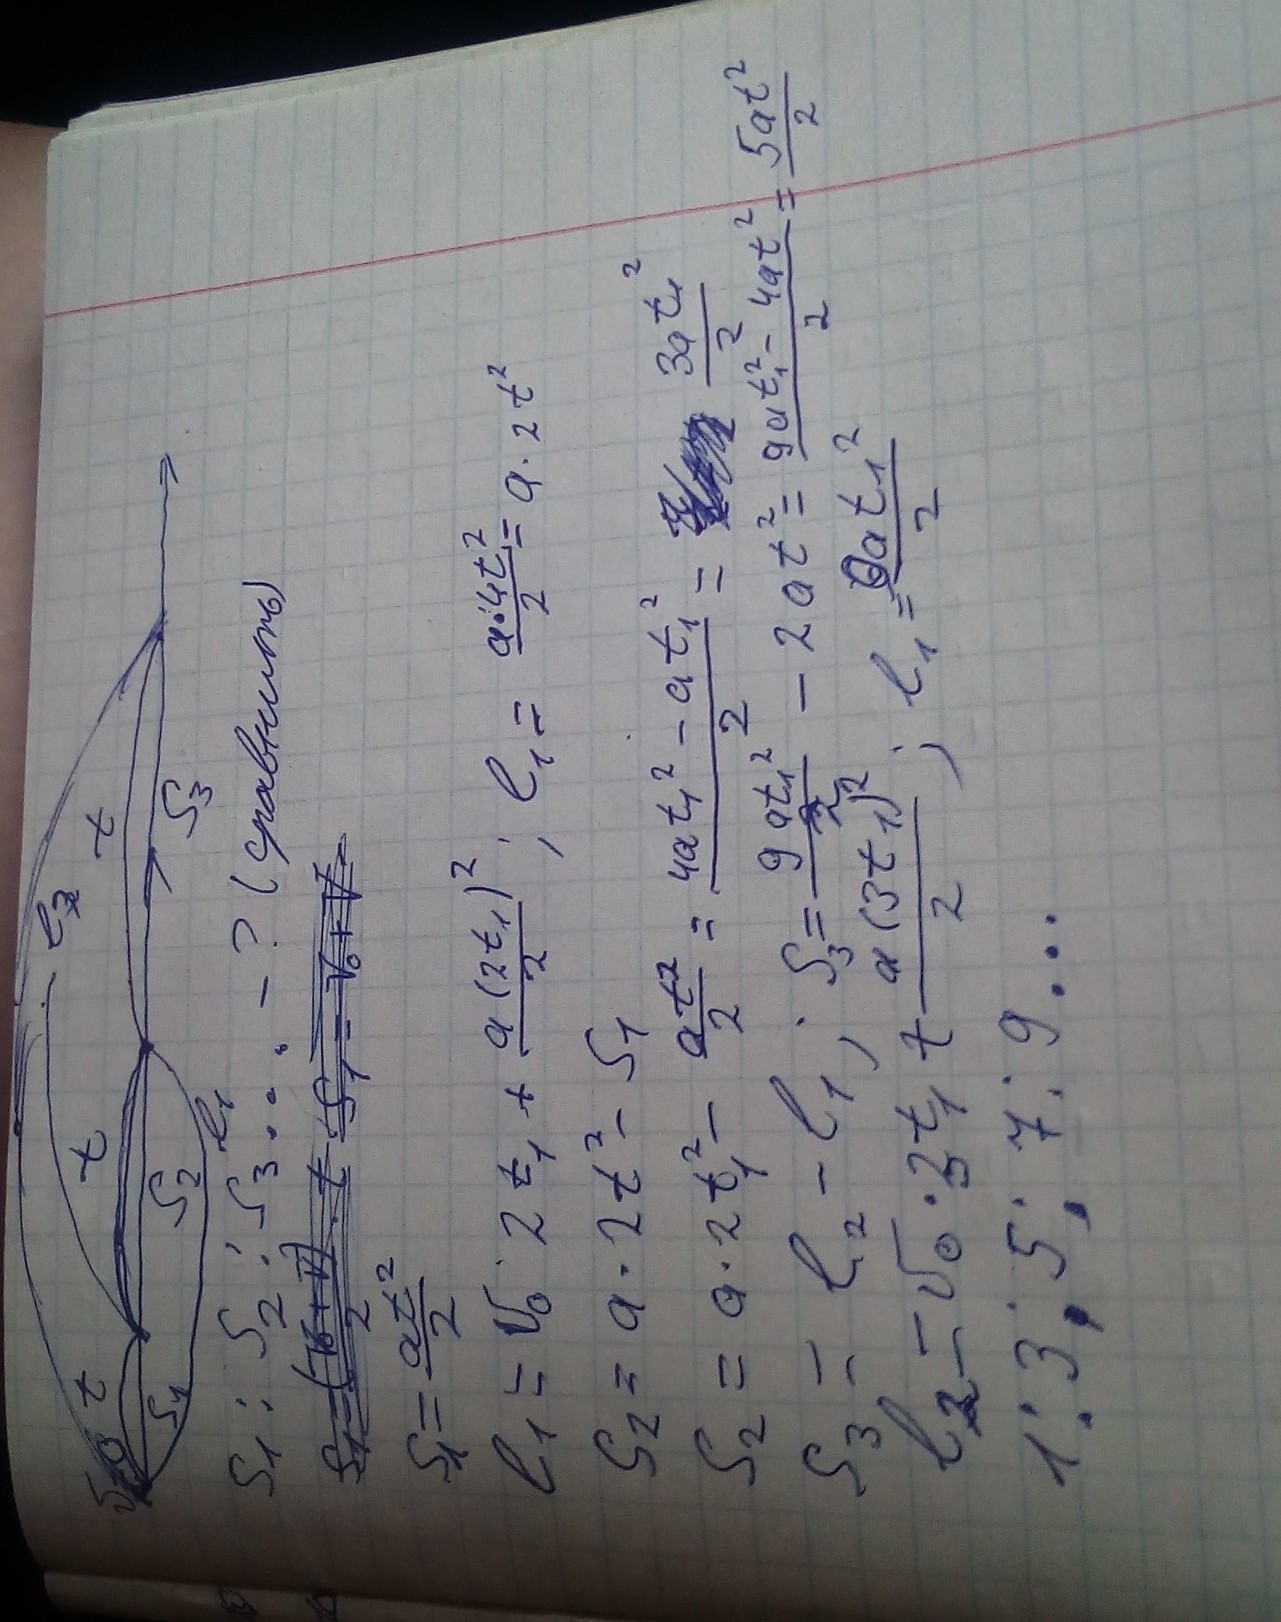 t t t l₂
S₁ S₂ S₃
l₁
S₁ : S₂ : S₃ .... - ? (сравнить)
S₁ = at²/2
l₁ = V₀ · 2t₁ + a(2t₁)²/2 ; l₁ = a·4t²/2 = a · 2t²
S₂ = a · 2t² - S₁
S₂ = a · 2t₁² - at²/2 = 4at₁² - at₁²/2 = 3at₁²/2
S₃ = l₂ - l₁ ; S₃ = 9at₁²/2 - 2at² = 9at₁² - 4at²/2 = 5at²/2
l₂ = V₀ · 3t₁ + a(3t₁)²/2 ; l₁ = 9at₁²/2
1 : 3 : 5 : 7 : 9 ...